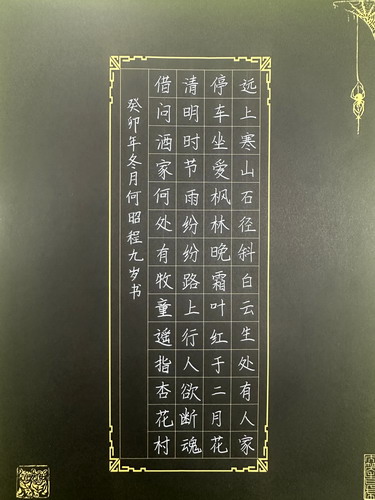 远上寒山石径斜白云生处有人家
停车坐爱枫林晚霜叶红于二月花
清明时节雨纷纷路上行人欲断魂
借问酒家何处有牧童遥指杏花村
癸卯年冬月何昭程九岁书